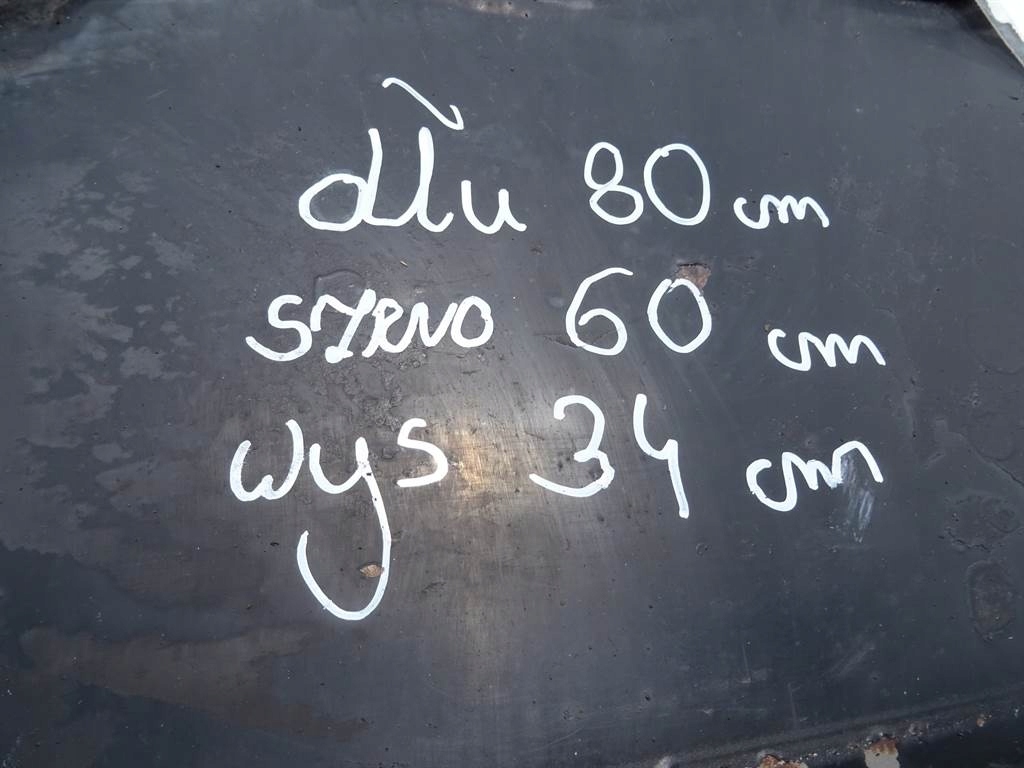 dłu 80 cm
szero 60 cm
wys 34 cm